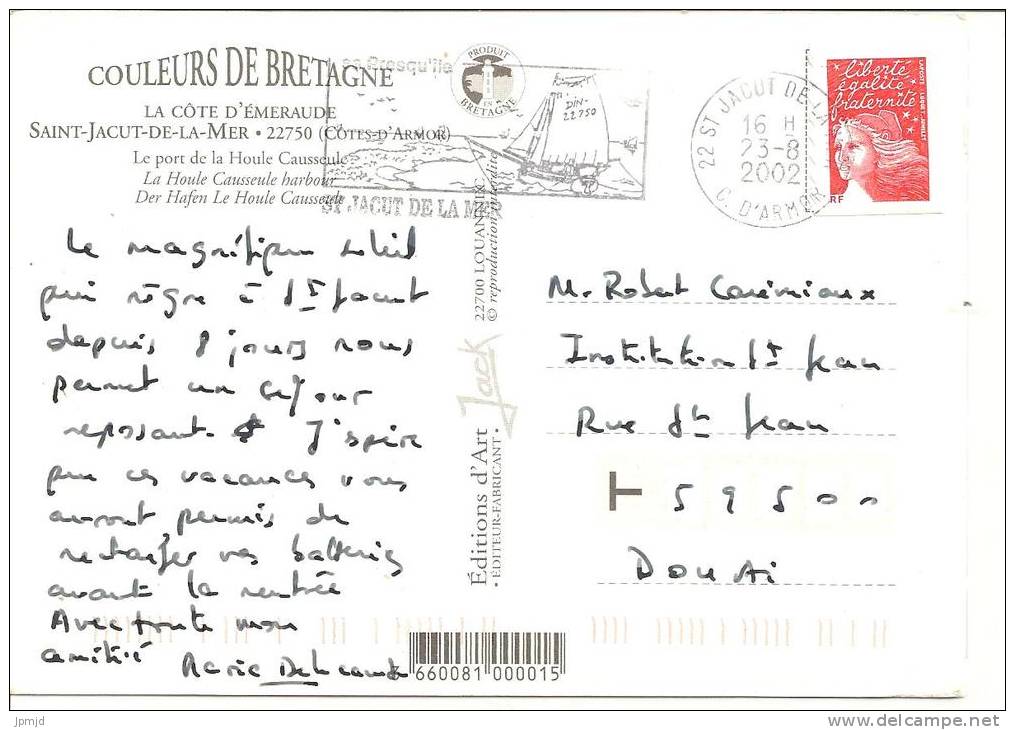 COULEURS DE BRETAGNE
LA CÔTE D'ÉMERAUDE
SAINT-JACUT-DE-LA-MER • 22750 (CÔTES-D'ARMOR)
Le port de la Houle Causseule
La Houle Causseule harbour
Der Hafen Le Houle Causseule
sa Presqu'île
PRODUIT EN BRETAGNE
DIN-
22750
ST JACUT DE LA MER
22 ST JACUT DE-LA
16 H
23-8
2002
C. D'ARMOR
liberté
égalité
fraternité
RF
Le magnifique soleil
qui règne à St Jacut
depuis 8 jours nous
permet un séjour
reposant. J'espère
que ces vacances vous
auront permis de
recharger vos batteries
avant la rentrée
Avec toute mon
amitié
Marie
Éditions d'Art Jack
• ÉDITEUR-FABRICANT •
22700 LOUANNEC
© reproduction interdite
Mr Robert
Institution St Jean
Rue St Jean
T 59500
DOUAI
660081 000015
jpmjd
delcampe.net